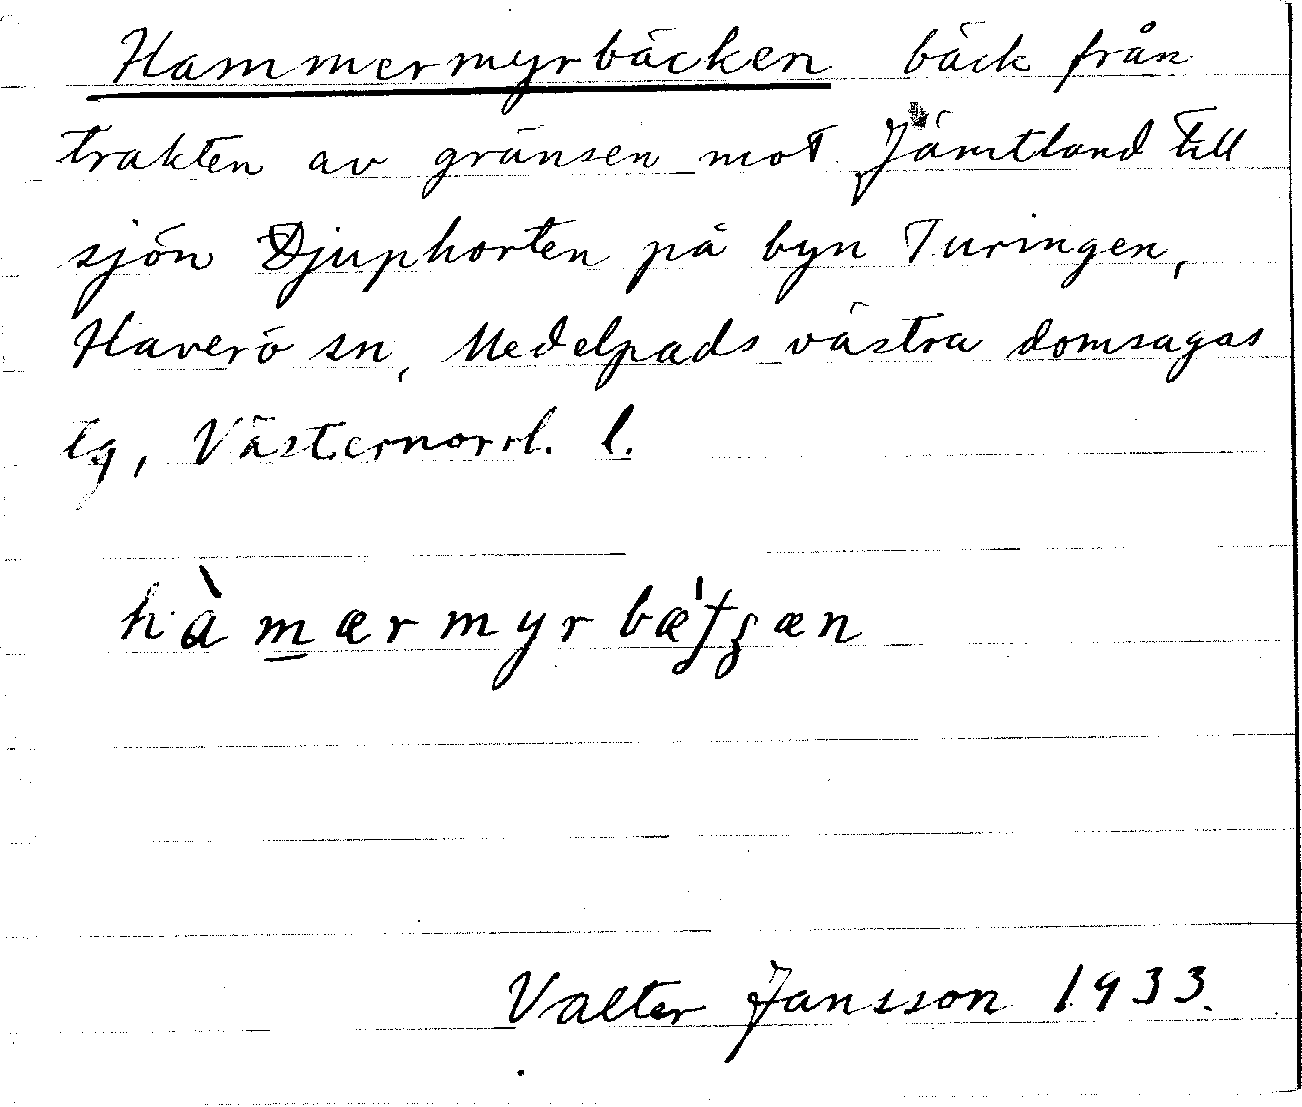 Hammermyrbäcken bäck från
trakten av gränsen mot Jämtland till
sjön Djuphorten på byn Turingen,
Haverö sn, Medelpads västra domsagas
tg, Västernorrl. l.
hàm̲ærmyrbæ'ʈʂæn
Valter Jansson 1933.